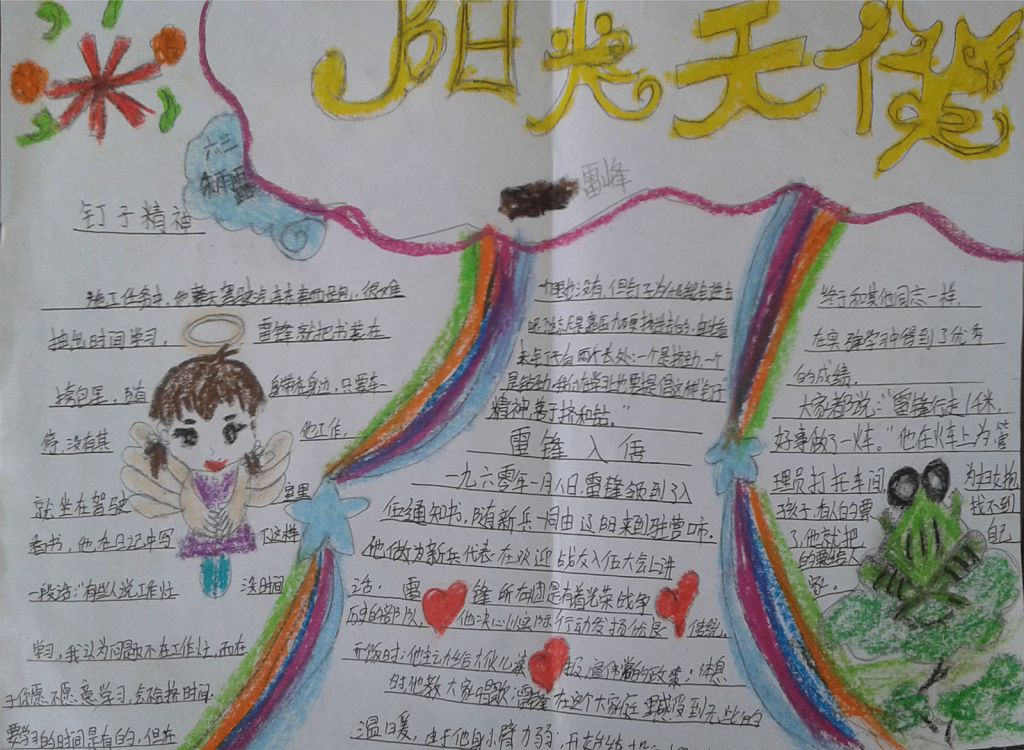 阳光天使
六三
朱雨雷
雷峰
钉子精神
施工任务中,他整天驾驶汽车东奔西跑,很难
抽出时间学习,雷锋就把书装在
挎包里,随身带在身边,只要车一
停,没有其他工作,
就坐在驾驶室里
看书,他在日记中写下这样
一段话:“有些人说工作忙没时间
学习,我认为问题不在工作忙,而在
于你愿不愿意学习,会不会挤时间。
要学习的时间是有的,但在
精神善于挤和钻。”
雷锋入伍
一九六零年一月八日,雷锋领到了入
伍通知书,随新兵一同由辽阳来到驻营口市。
他做为新兵代表在欢迎战友入伍大会上讲
话:雷锋所在团是有着光荣战争
历史的部队,他决心以实际行动发扬优良传统,
时他教大家唱歌,雷锋在这个大家庭里感受到无比的
温暖,由于他身小臂力弱,
终于和其他同志一样,
在实弹学习中得到了优秀
的成绩。
大家都说:“雷锋行走1千米,
好事做了一火车。”他在火车上为管
理员打扫车间,为妇女抱
孩子,有人的票找不到
了,他就把自己
的票给人
家。